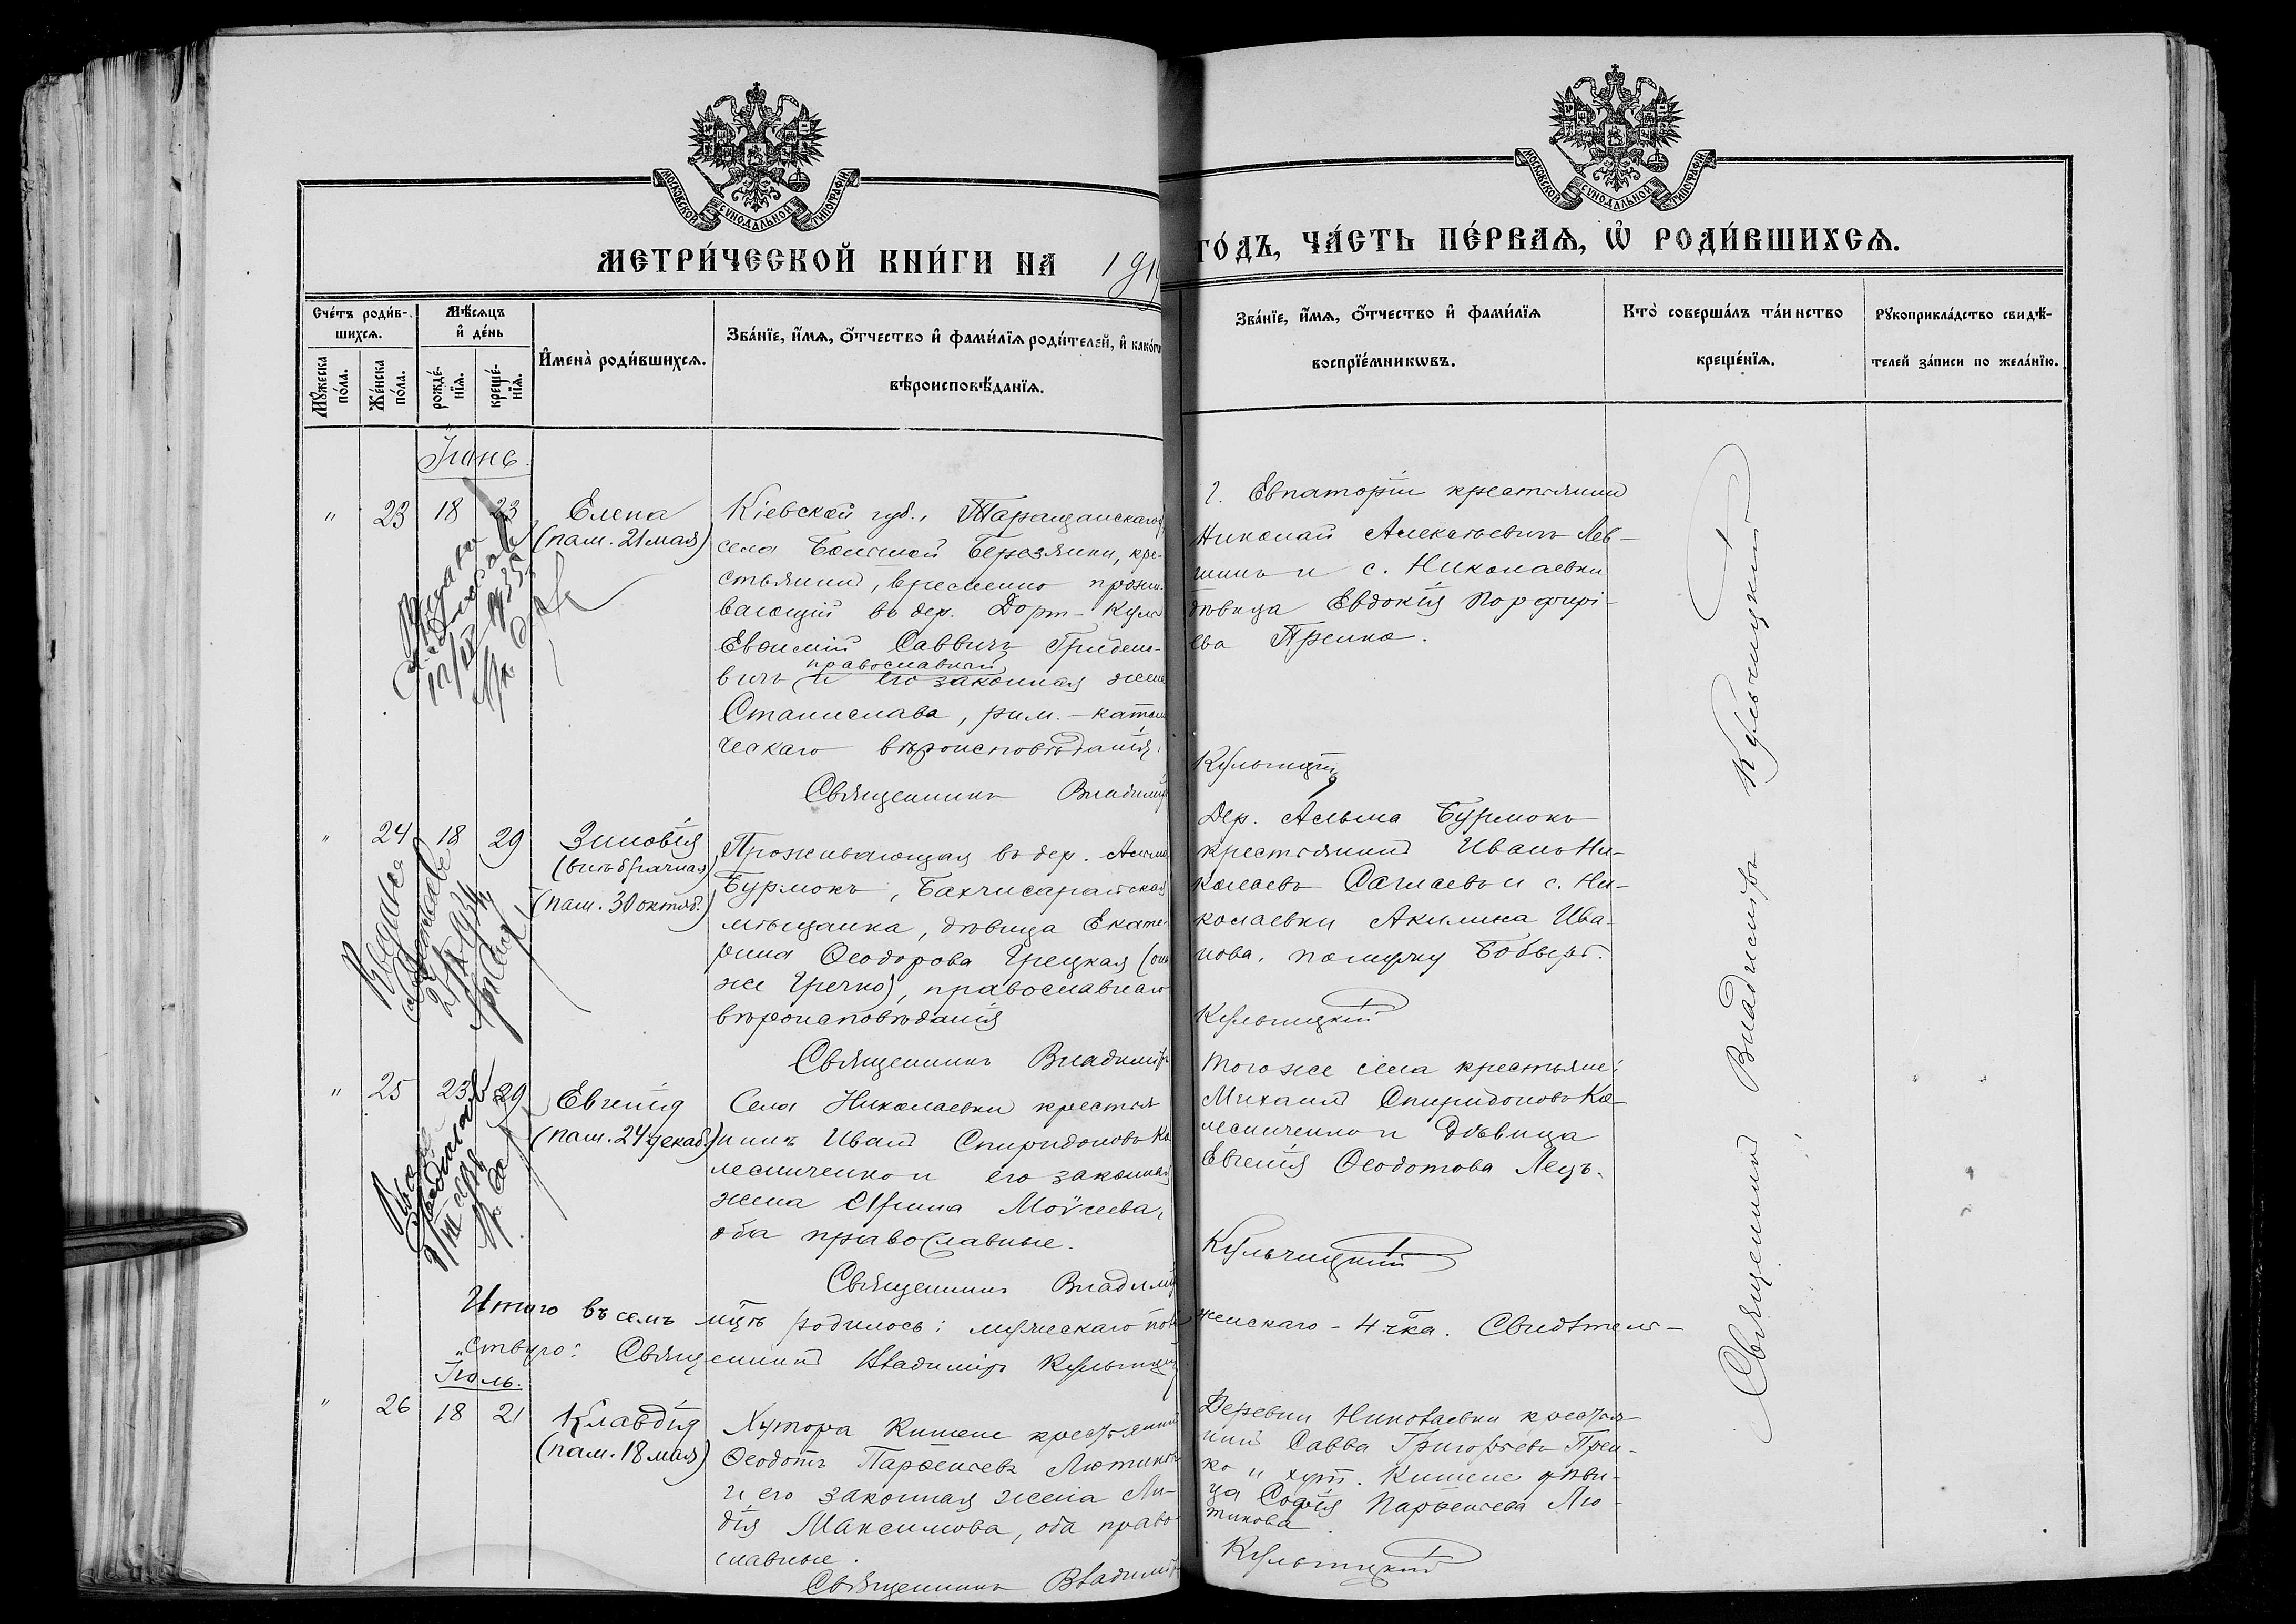 МОСКОВСКОЙ СѴНОДАЛЬНОЙ ТИПОГРАФІИ
МОСКОВСКОЙ СѴНОДАЛЬНОЙ ТИПОГРАФІИ
МЕТРИ́ЧЕСКОЙ КНИ́ГИ НА 191
ГО́ДЪ, ЧА́СТЬ ПЕ́РВАЯ, Ѡ҆ РОДИ́ВШИХСЯ.
Сче́тъ роди́в-
шихся.
Мꙋ́жеска по́ла.
Же́нска по́ла.
Мѣ́сяцъ
и҆ де́нь
рожде́-нїя.
креще́-нїя.
И҆мена̀ роди́вшихся.
Зва́нїе, и҆́мя, ѻ҆́тчество и҆ фами́лїя роди́телей, и҆ како́гѡ
вѣроисповѣ́данїя.
Зва́нїе, и҆́мя, ѻ҆́тчество и҆ фами́лїя
воспрїе́мникѡвъ.
Кто̀ соверша́лъ та́инство
креще́нїя.
Рꙋкоприкла́дство свидѣ́-
телей за́писи по жела́нїю.
Іюнь.
" 23 18 23
Елена
(пам. 21 мая)
Кіевской губ., Таращанскаго у.
села Большой Березянки, кре-
стьянинъ, временно прожи-
вающій въ дер. Дорт-Куль
Евѳимій Саввичъ Гриден-
православный
вичъ и его законная жена
Станислава, рим.-католи
ческаго вѣроисповѣданія.
Священникъ Владиміръ
г. Евпаторіи крестьянинъ
Николай Алексѣевичъ Лев-
шинъ и с. Николаевки
дѣвица Евдокія Порфирі-
ева Пренко.
Кульчицкій
" 24 18 29
Зиновія
(внѣбрачная)
(пам. 30 октяб.)
Проживающая въ дер. Альма
Бурмокъ, Бахчисарайская
мѣщанка, дѣвица Екате-
рина Ѳеодорова Грецкая (она
же Гречко), православнаго
вѣроисповѣданія
Священникъ Владиміръ
Дер. Альма Бурмокъ
крестьянинъ Иванъ Ни-
колаевъ и с. Ни-
колаевки Акилина Ива-
нова,
Кульчицкій
" 25 23 29
Евгенія
(пам. 24 декаб.)
Села Николаевки крестья
нинъ Иванъ Спиридоновъ Ко
лесниченко и его законная
жена Ирина Моѵсеева,
оба православные.
Священникъ Владиміръ
Того же села крестьяне:
Михаилъ Спиридоновъ Ко-
лесниченко и дѣвица
Евгенія Ѳеодотова Лецъ.
Кульчицкій
Итого въ семъ мцѣ родилось: мужескаго пола
женскаго - 4 чка. Свидѣтель-
ствую: Священникъ Владиміръ Кульчицкій
Іюль.
" 26 18 21
Клавдія
(пам. 18 мая)
Хутора Кишене крестьянинъ
Ѳеодотъ Парѳеньевъ Лютиковъ
и его законная жена Ли-
дія Максимова, оба право
славные.
Священникъ Владиміръ
Деревни Николаевки крестья-
нинъ Савва Григорьевъ Прен-
ко и хут. Кишене дѣви-
ца Софія Парѳеньева Лю-
тикова.
Кульчицкій
Священникъ Владиміръ Кульчицкій